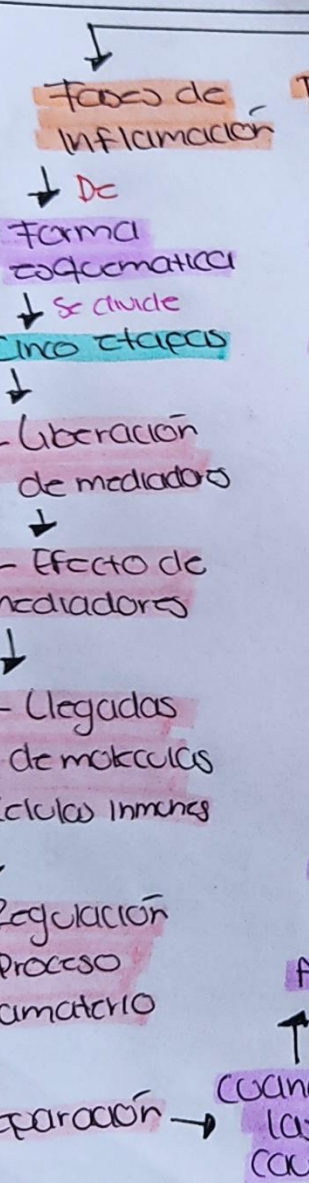 Fases de
Inflamación
De
Forma
esquematica
Se divide
Cinco etapas
- Liberación
de mediadores
- Efecto de
mediadores
- Llegadas
de moleculas
celulas inmunes
Regulación
Proceso
amatorio
paración
cuan
las
cau